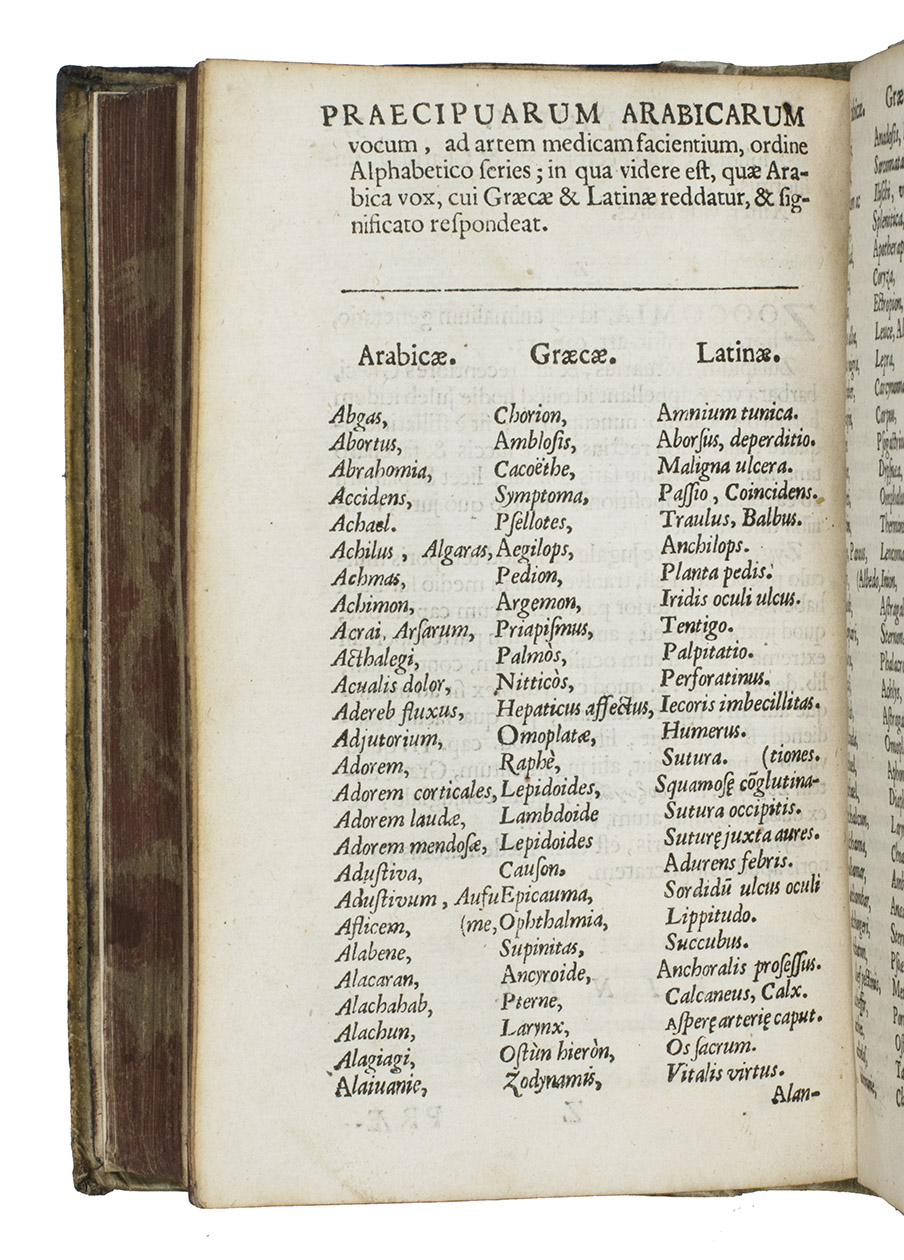 PRAECIPUARUM ARABICARUM
vocum, ad artem medicam facientium, ordine
Alphabetico ſeries; in qua videre eſt, quæ Ara-
bica vox, cui Græcæ & Latinæ reddatur, & ſig-
nificato reſpondeat.
Arabicæ. Græcæ. Latinæ.
Abgas, Chorion, Amnium tunica.
Abortus, Ambloſis, Aborſus, deperditio.
Abrahomia, Cacoëthe, Maligna ulcera.
Accidens, Symptoma, Paſſio, Coincidens.
Achael. Pſellotes, Traulus, Balbus.
Achilus, Algaras, Aegilops, Anchilops.
Achmas, Pedion, Planta pedis.
Achimon, Argemon, Iridis oculi ulcus.
Acrai, Arſarum, Priapiſmus, Tentigo.
Acthalegi, Palmòs, Palpitatio.
Acualis dolor, Nitticòs, Perforatinus.
Adereb fluxus, Hepaticus affectus, Iecoris imbecillitas.
Adjutorium, Omoplatæ, Humerus.
Adorem, Raphè, Sutura. (tiones.
Adorem corticales, Lepidoides, Squamoſę cōglutina-
Adorem laudæ, Lambdoide Sutura occipitis.
Adorem mendoſæ, Lepidoides Suturę juxta aures.
Aduſtiva, Cauſon. Adurens febris.
Aduſtivum, Aufu Epicauma, Sordidū ulcus oculi
Aflicem, (me, Ophthalmia, Lippitudo.
Alabene, Supinitas, Succubus.
Alacaran, Ancyroide, Anchoralis proſeſſus.
Alachahab, Pterne, Calcaneus, Calx.
Alachun, Larynx, Aſperę arterię caput.
Alagiagi, Oſtùn hieròn, Os ſacrum.
Alaiuanie, Zodynamis, Vitalis virtus.
Alan-